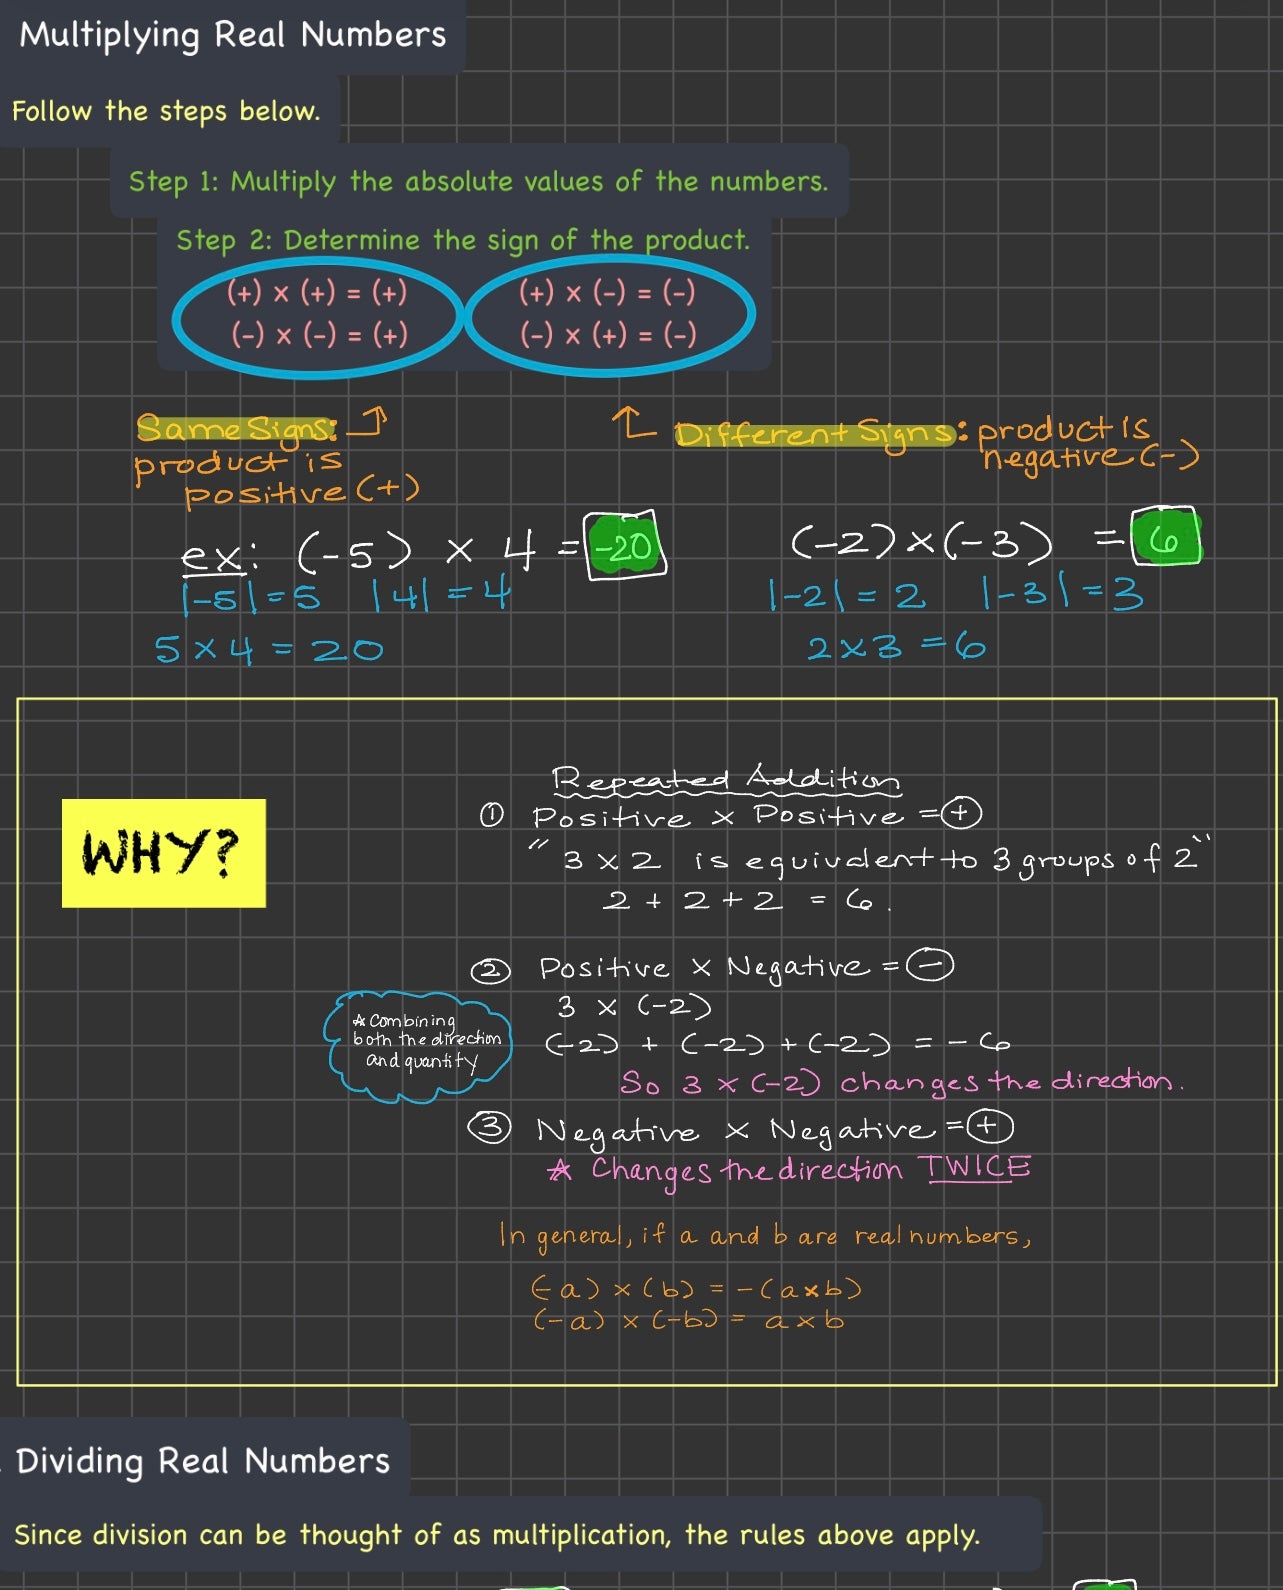 Multiplying Real Numbers
Follow the steps below.
Step 1: Multiply the absolute values of the numbers.
Step 2: Determine the sign of the product.
(+) × (+) = (+)
(-) × (-) = (+)
(+) × (-) = (-)
(-) × (+) = (-)
Same Signs:
product is
positive (+)
Different Signs: product is
negative (-)
ex: (-5) × 4 = -20
|-5| = 5 |4| = 4
5 × 4 = 20
(-2) × (-3) = 6
|-2| = 2 |-3| = 3
2 × 3 = 6
WHY?
Repeated Addition
① Positive × Positive = +
" 3 × 2 is equivalent to 3 groups of 2"
2 + 2 + 2 = 6.
② Positive × Negative = -
3 × (-2)
(-2) + (-2) + (-2) = -6
So 3 × (-2) changes the direction.
☆ Combining
both the direction
and quantity
③ Negative × Negative = +
☆ Changes the direction TWICE
In general, if a and b are real numbers,
(-a) × (b) = -(a×b)
(-a) × (-b) = a × b
. Dividing Real Numbers
Since division can be thought of as multiplication, the rules above apply.